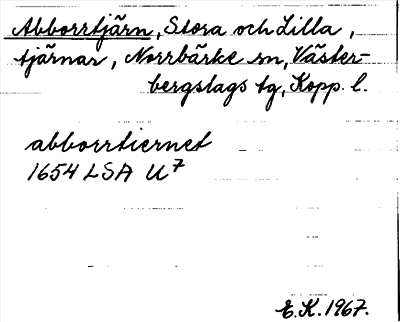 Abborrtjärn, Stora och Lilla,
tjärnar, Norrbärke sn, Väster-
bergslags tg, Kopp. l.
abborrtiernet
1654 LSA U7
E.K. 1967.